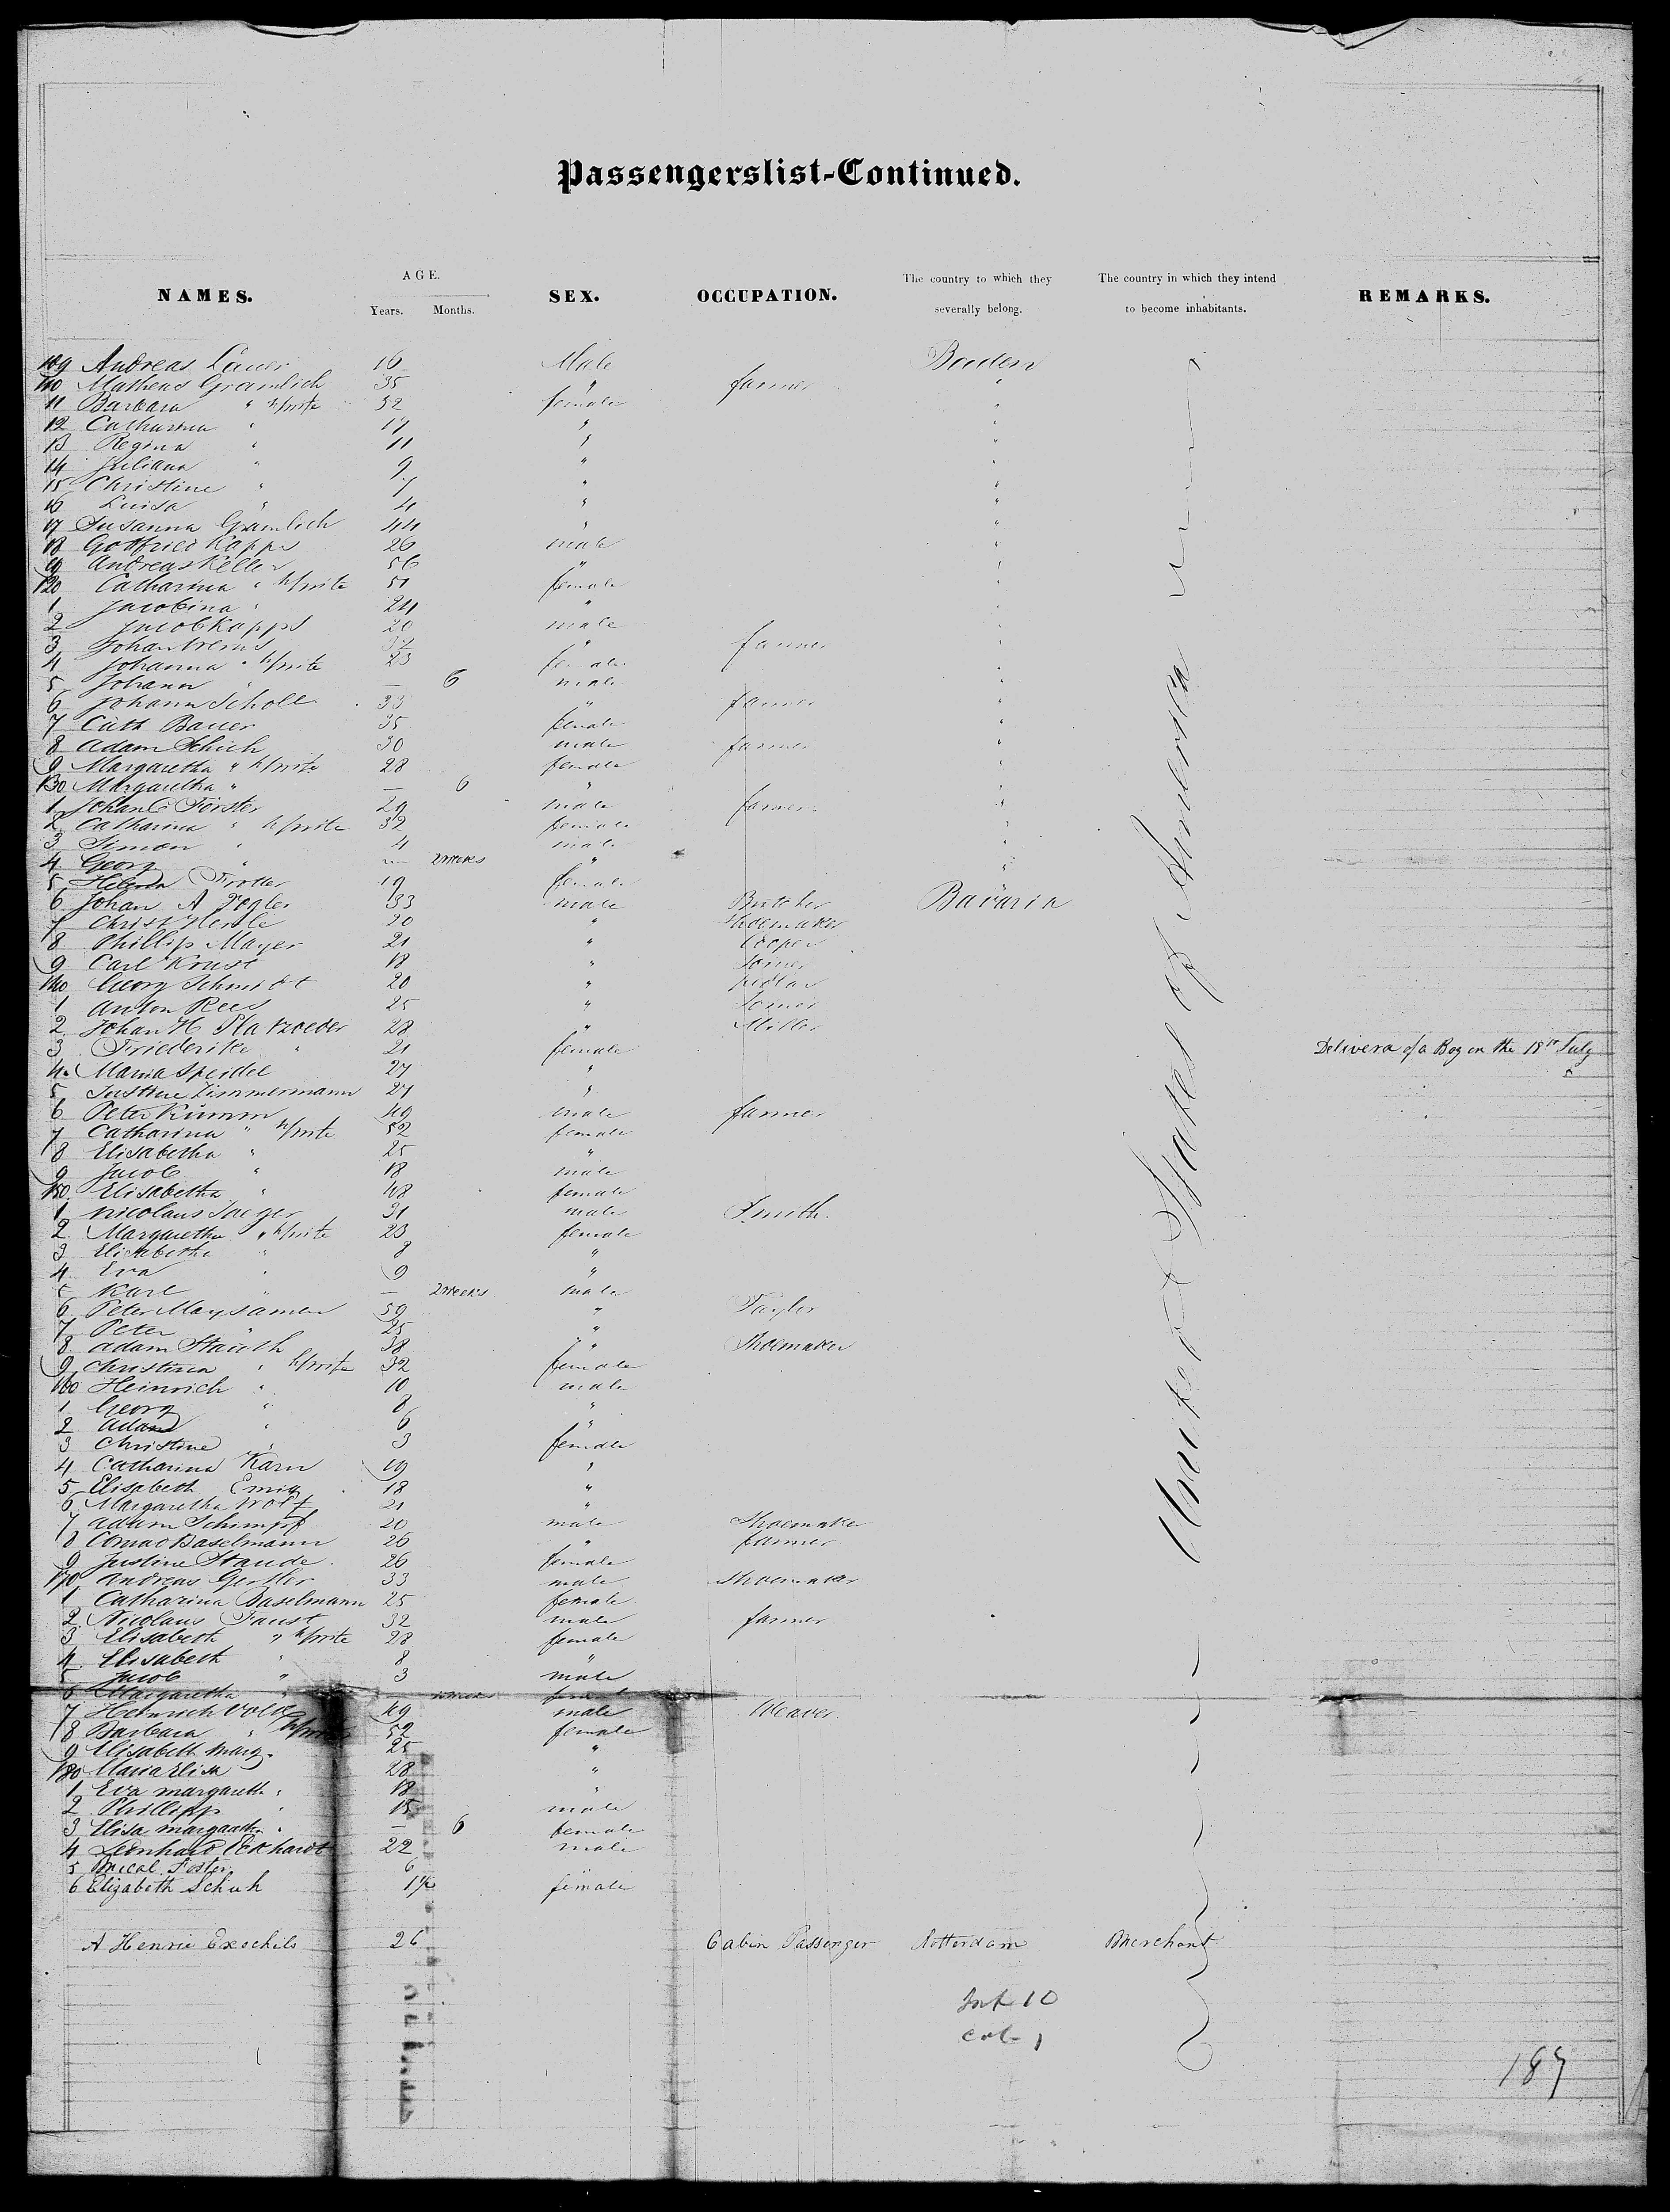 Passengerslist-Continued.
NAMES. AGE. Years. Months. SEX. OCCUPATION. The country to which they severally belong. The country in which they intend to become inhabitants. REMARKS.
109 Andreas Lauer 16 Male Baden
110 Matheus Gramlich 35 " farmer "
11 Barbara " h/wife 32 female "
12 Catharina " 17 " "
13 Regina " 11 " "
14 Juliana " 9 " "
15 Christine " 7 " "
16 Luisa " 4 " "
17 Susanna Gramlich 44 " "
18 Gottfried Kapps 26 male "
19 Andreas Keller 56 " "
120 Catharina " h/wife 51 female "
1 Jacobina " 24 " "
2 Jacob Kapps 20 male "
3 Johan " farmer "
4 Johanna " h/wife 23 female "
5 Johann " — 6 male "
6 Johann Scholl 33 " farmer "
7 Cath Bauer 35 female "
8 Adam Schich 30 male farmer "
9 Margaretha " h/wife 28 female "
130 Margaretha " — 6 " "
1 Johan C Förster 29 male farmer "
2 Catharina " h/wife 32 female "
3 Simon " 4 male "
4 Georg " — 2 weeks " "
5 Helena 19 female "
6 Johan A 33 male Butcher Bavaria
7 Christ 20 " Shoemaker
8 Phillip Mayer 21 " Cooper
9 Carl Krust 18 "
140 Georg Schmidt 20 "
1 Anton Rees 25 "
2 Johan H Platzroeder 28 " Miller
3 Friederike " 21 female Delivera of a Boy on the 18th July
4 Maria Speidel 27 "
5 Justine Zimmermann 21 "
6 Peter Kümm 49 male farmer
7 Catharina " h/wife 52 female
8 Elisabetha " 25 "
9 Jacob " 18 male
150 Elisabetha " female
1 Nicolaus Jaeger 31 male Smith.
2 Margaretha " h/wife 23 female
3 Elisabetha " 8 "
4 Eva " 9 "
5 Karl " — 2 weeks male
6 Peter Maysamer 59 " Taylor
7 Peter " 25 "
8 Adam Stauth 38 " Shoemaker
9 Christina " h/wife 32 female
160 Heinrich " 10 male
1 Georg " 8 "
2 Adam " 6 "
3 Christine " 3 female
4 Catharina Karn 19 "
5 Elisabeth Emig 18 "
6 Margaretha Wolf 21 "
7 Adam Schimpf 20 male Shoemaker
8 Conrad Baselmann 26 " farmer
9 Justine Staude 26 female
170 Andreas Gertler 33 male Shoemaker
1 Catharina Baselmann 25 female
2 Nicolaus Faust 32 male farmer
3 Elisabeth " h/wife 28 female
4 Elisabeth " 8 "
5 Jacob " 3 male
6 Margaretha " — weeks female
7 Heinrich Volk 49 male Weaver.
8 Barbara " h/wife 52 female
9 Elisabeth Marg. 25 "
180 Maria Elisa 28 "
1 Eva margareth " 18 "
2 Phillipp " 15 male
3 Elisa margaretha " — 6 female
4 Leonhard Eckhardt 22 male
5 Foster 6
6 Elizabeth Schuh 1½ female
United States of America
A Henrie Exschils 26 Cabin Passenger Rotterdam Merchant
Inf 10
cab 1
187